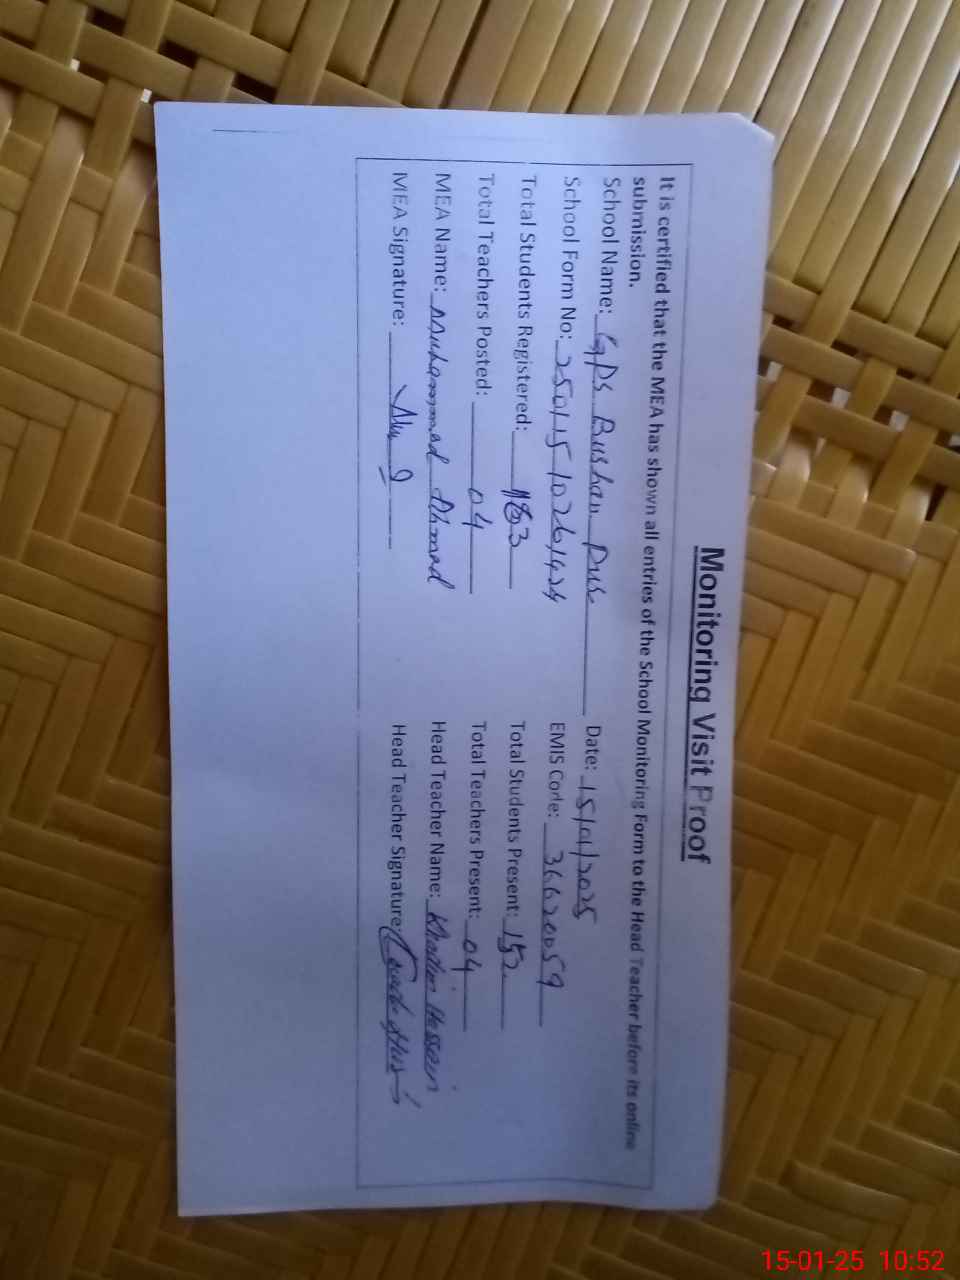 Monitoring Visit Proof
It is certified that the MEA has shown all entries of the School Monitoring Form to the Head Teacher before its online
submission.
School Name: GPS Bushan Pur Date: 15/01/2025
School Form No: EMIS Code: 36620059
Total Students Registered: Total Students Present: 152
Total Teachers Posted: 04 Total Teachers Present: 04
MEA Name: Muhammad Ahmad Head Teacher Name: Khadim Hussain
MEA Signature: Head Teacher Signature:
15-01-25 10:52